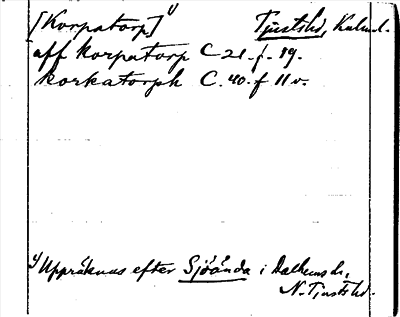 [Korpatorp] 1) Tjustshd, Kalm.l.
aff korpatorp C 21. f. 19.
korkatorph C. 40. f 11 v.
1) Uppräknas efter Sjöända i Dalhems sn,
N. Tjusts hd.